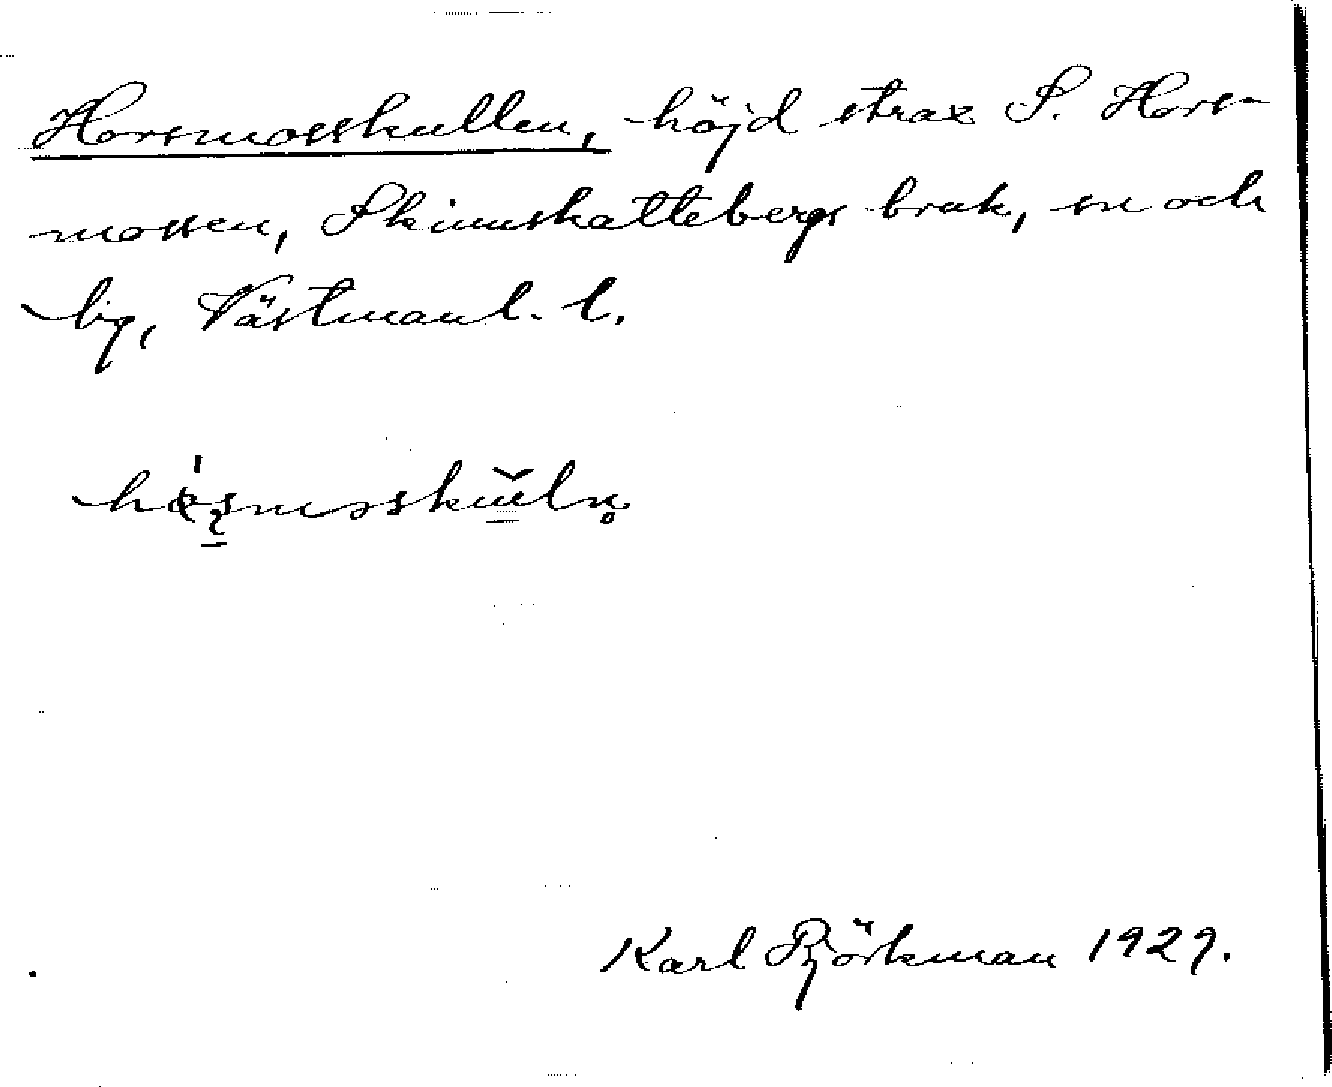 Horsmosskullen, höjd strax S. Hors-
mossen, Skinnskattebergs bruk, sn och
by, Västmanl. l.
Karl Björkman 1929.